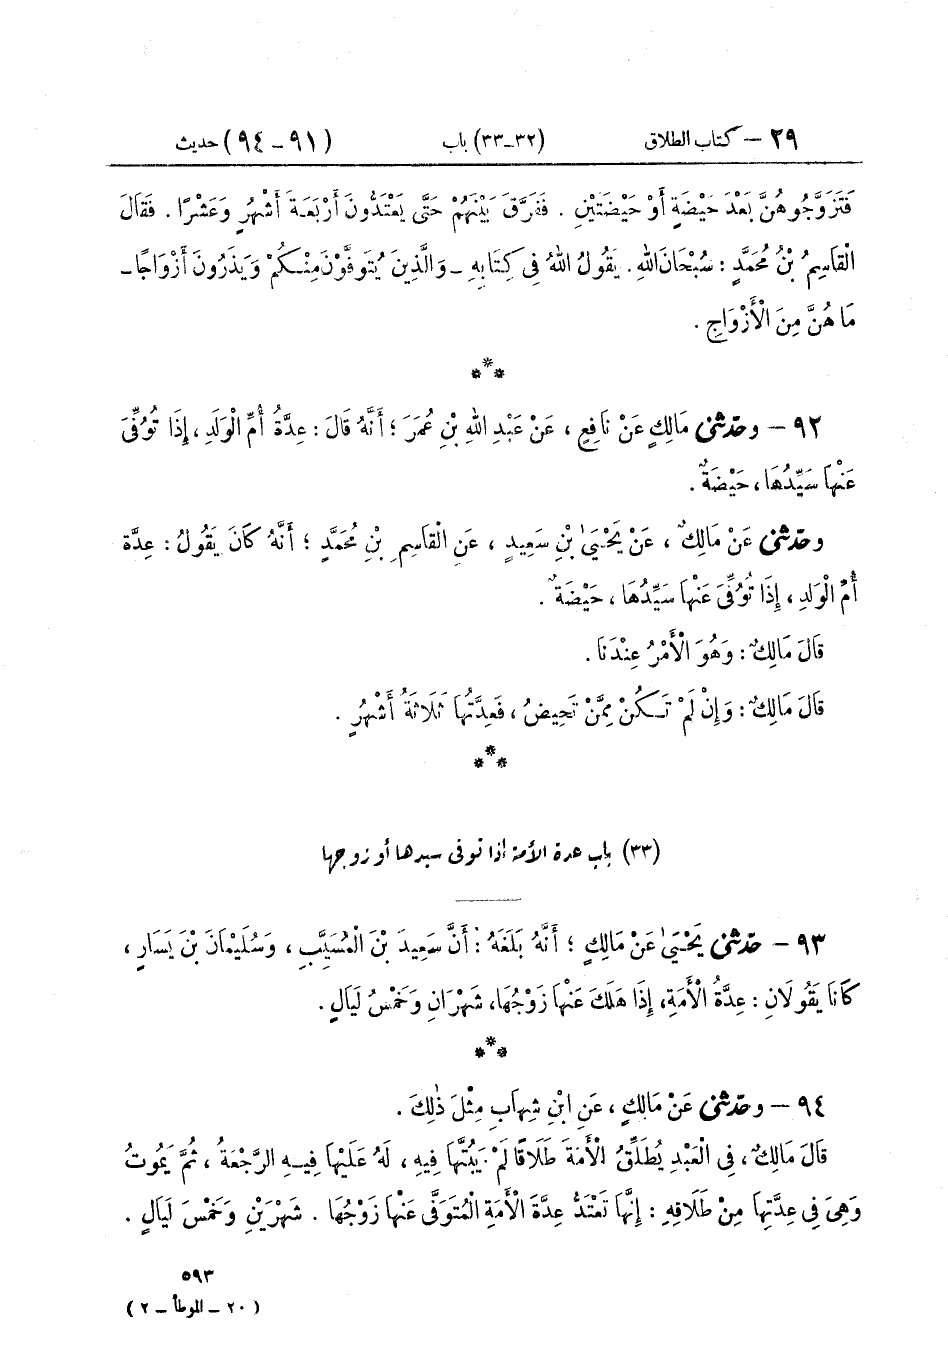 ٢٩ — كتاب الطلاق (٣٢-٣٣) باب (٩١ - ٩٤) حديث
فَتَزَوَّجُوهُنَّ بَعْدَ حَيْضَةٍ أَوْ حَيْضَتَيْنِ . فَفَرَّقَ بَيْنَهُمْ حَتَّى يَعْتَدُّونَ أَرْبَعَةَ أَشْهُرٍ وَعَشْرًا . فَقَالَ
الْقَاسِمُ بْنُ مُحَمَّدٍ : سُبْحَانَ اللهِ . يَقُولُ اللهُ فِي كِتَابِهِ ـ وَالَّذِينَ يُتَوَفَّوْنَ مِنْكُمْ وَيَذَرُونَ أَزْوَاجًا ـ
مَا هُنَّ مِنَ الْأَزْوَاجِ .
***
٩٢ — وحدّثنى مَالِكٍ عَنْ نَافِعٍ ، عَنْ عَبْدِ اللهِ بْنِ عُمَرَ ؛ أَنَّهُ قَالَ : عِدَّةُ أُمِّ الْوَلَدِ ، إِذَا تُوُفِّىَ
عَنْهَا سَيِّدُهَا ، حَيْضَةٌ .
وحدّثنى عَنْ مَالِكٌ ، عَنْ يَحْيَىٰ بْنِ سَعِيدٍ ، عَنِ الْقَاسِمِ بْنِ مُحَمَّدٍ ؛ أَنَّهُ كَانَ يَقُولُ : عِدَّة
أُمِّ الْوَلَدِ ، إِذَا تُوُفِّىَ عَنْهَا سَيِّدُهَا ، حَيْضَةٌ .
قَالَ مَالِكٌ : وَهُوَ الْأَمْرُ عِنْدَنَا .
قَالَ مَالِكٌ : وَإِنْ لَمْ تَكُنْ مِمَّنْ تَحِيضُ ، فَعِدَّتُهَا ثَلَاثَةُ أَشْهُرٍ .
***
(٣٣) باب عدة الأمة إذا توفى سيدها أو زوجها
٩٣ — حدّثنى يَحْيَىٰ عَنْ مَالِكٍ ؛ أَنَّهُ بَلَغَهُ : أَنَّ سَعِيدَ بْنَ الْمُسَيَّبِ ، وَسُلَيْمَانَ بْنَ يَسَارٍ ،
كَانَا يَقُولَانِ : عِدَّةُ الْأَمَةِ ، إِذَا هَلَكَ عَنْهَا زَوْجُهَا ، شَهْرَانِ وَخَمْسُ لَيَالٍ .
***
٩٤ — وحدّثنى عَنْ مَالِكٍ ، عَنِ ابْنِ شِهَابٍ مِثْلَ ذٰلِكَ .
قَالَ مَالِكٌ ، فِى الْعَبْدِ يُطَلِّقُ الْأَمَةَ طَلَاقًا لَمْ يَبُتَّهَا فِيهِ ، لَهُ عَلَيْهَا فِيهِ الرَّجْعَةُ ، ثُمَّ يَمُوتُ
وَهِىَ فِى عِدَّتِهَا مِنْ طَلَاقِهِ : إِنَّهَا تَعْتَدُّ عِدَّةَ الْأَمَةِ الْمُتَوَفَّى عَنْهَا زَوْجُهَا . شَهْرَيْنِ وَخَمْسَ لَيَالٍ .
٥٩٣
( ٢٠ — الموطأ — ٢ )